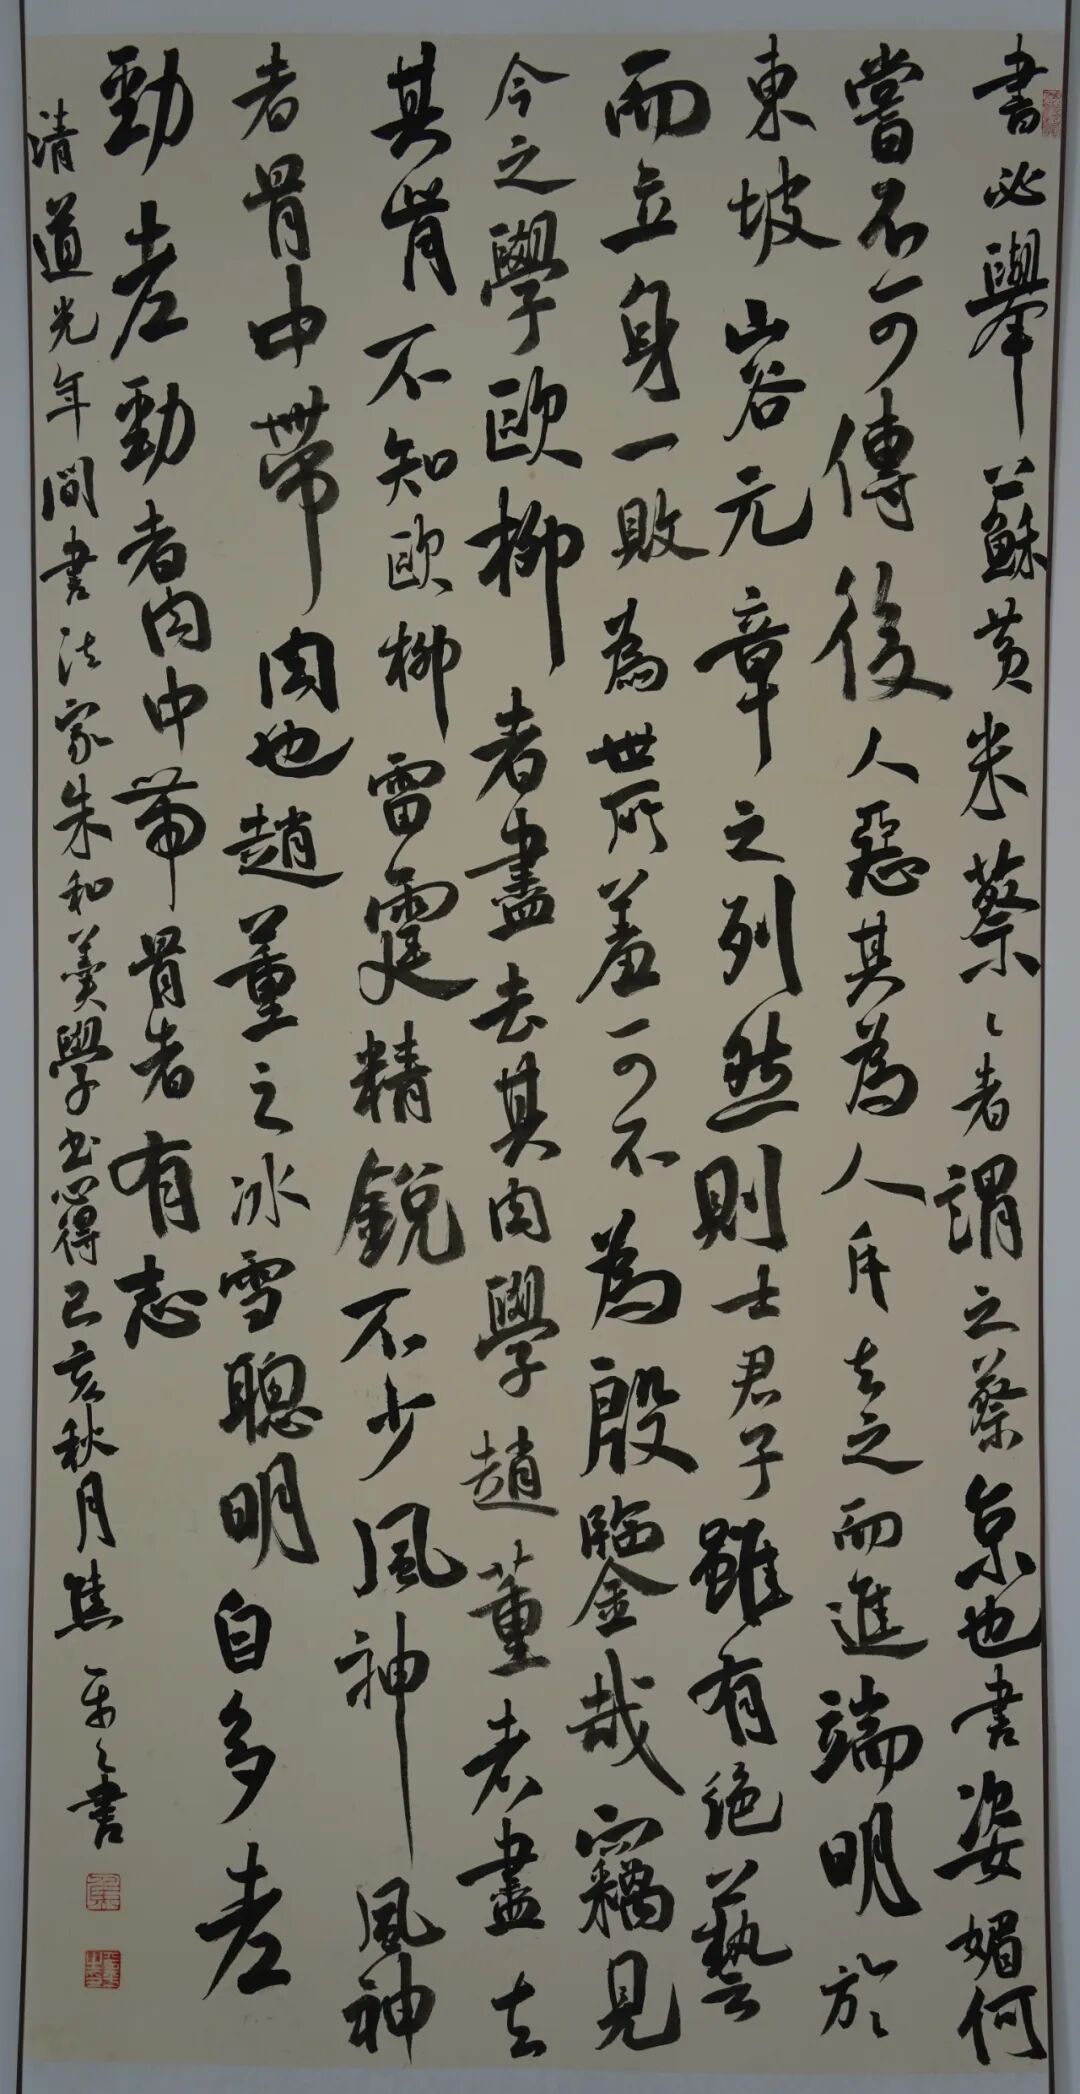 書必舉蘇黃米蔡〻者謂之蔡京也書姿媚何
嘗不可傳後人惡其為人斥去之而進端明於
東坡山谷元章之列然則士君子雖有絕藝
而立身一敗為世所羞可不為殷鑒哉竊見
今之學歐柳者盡去其肉學趙董者盡去
其骨不知歐柳雷霆精銳不少風神風神
者骨中帶肉也趙董之冰雪聰明自多老
勁老勁者肉中帶骨者有志
清道光年間書法家朱和羹學书心得己亥秋月焦書